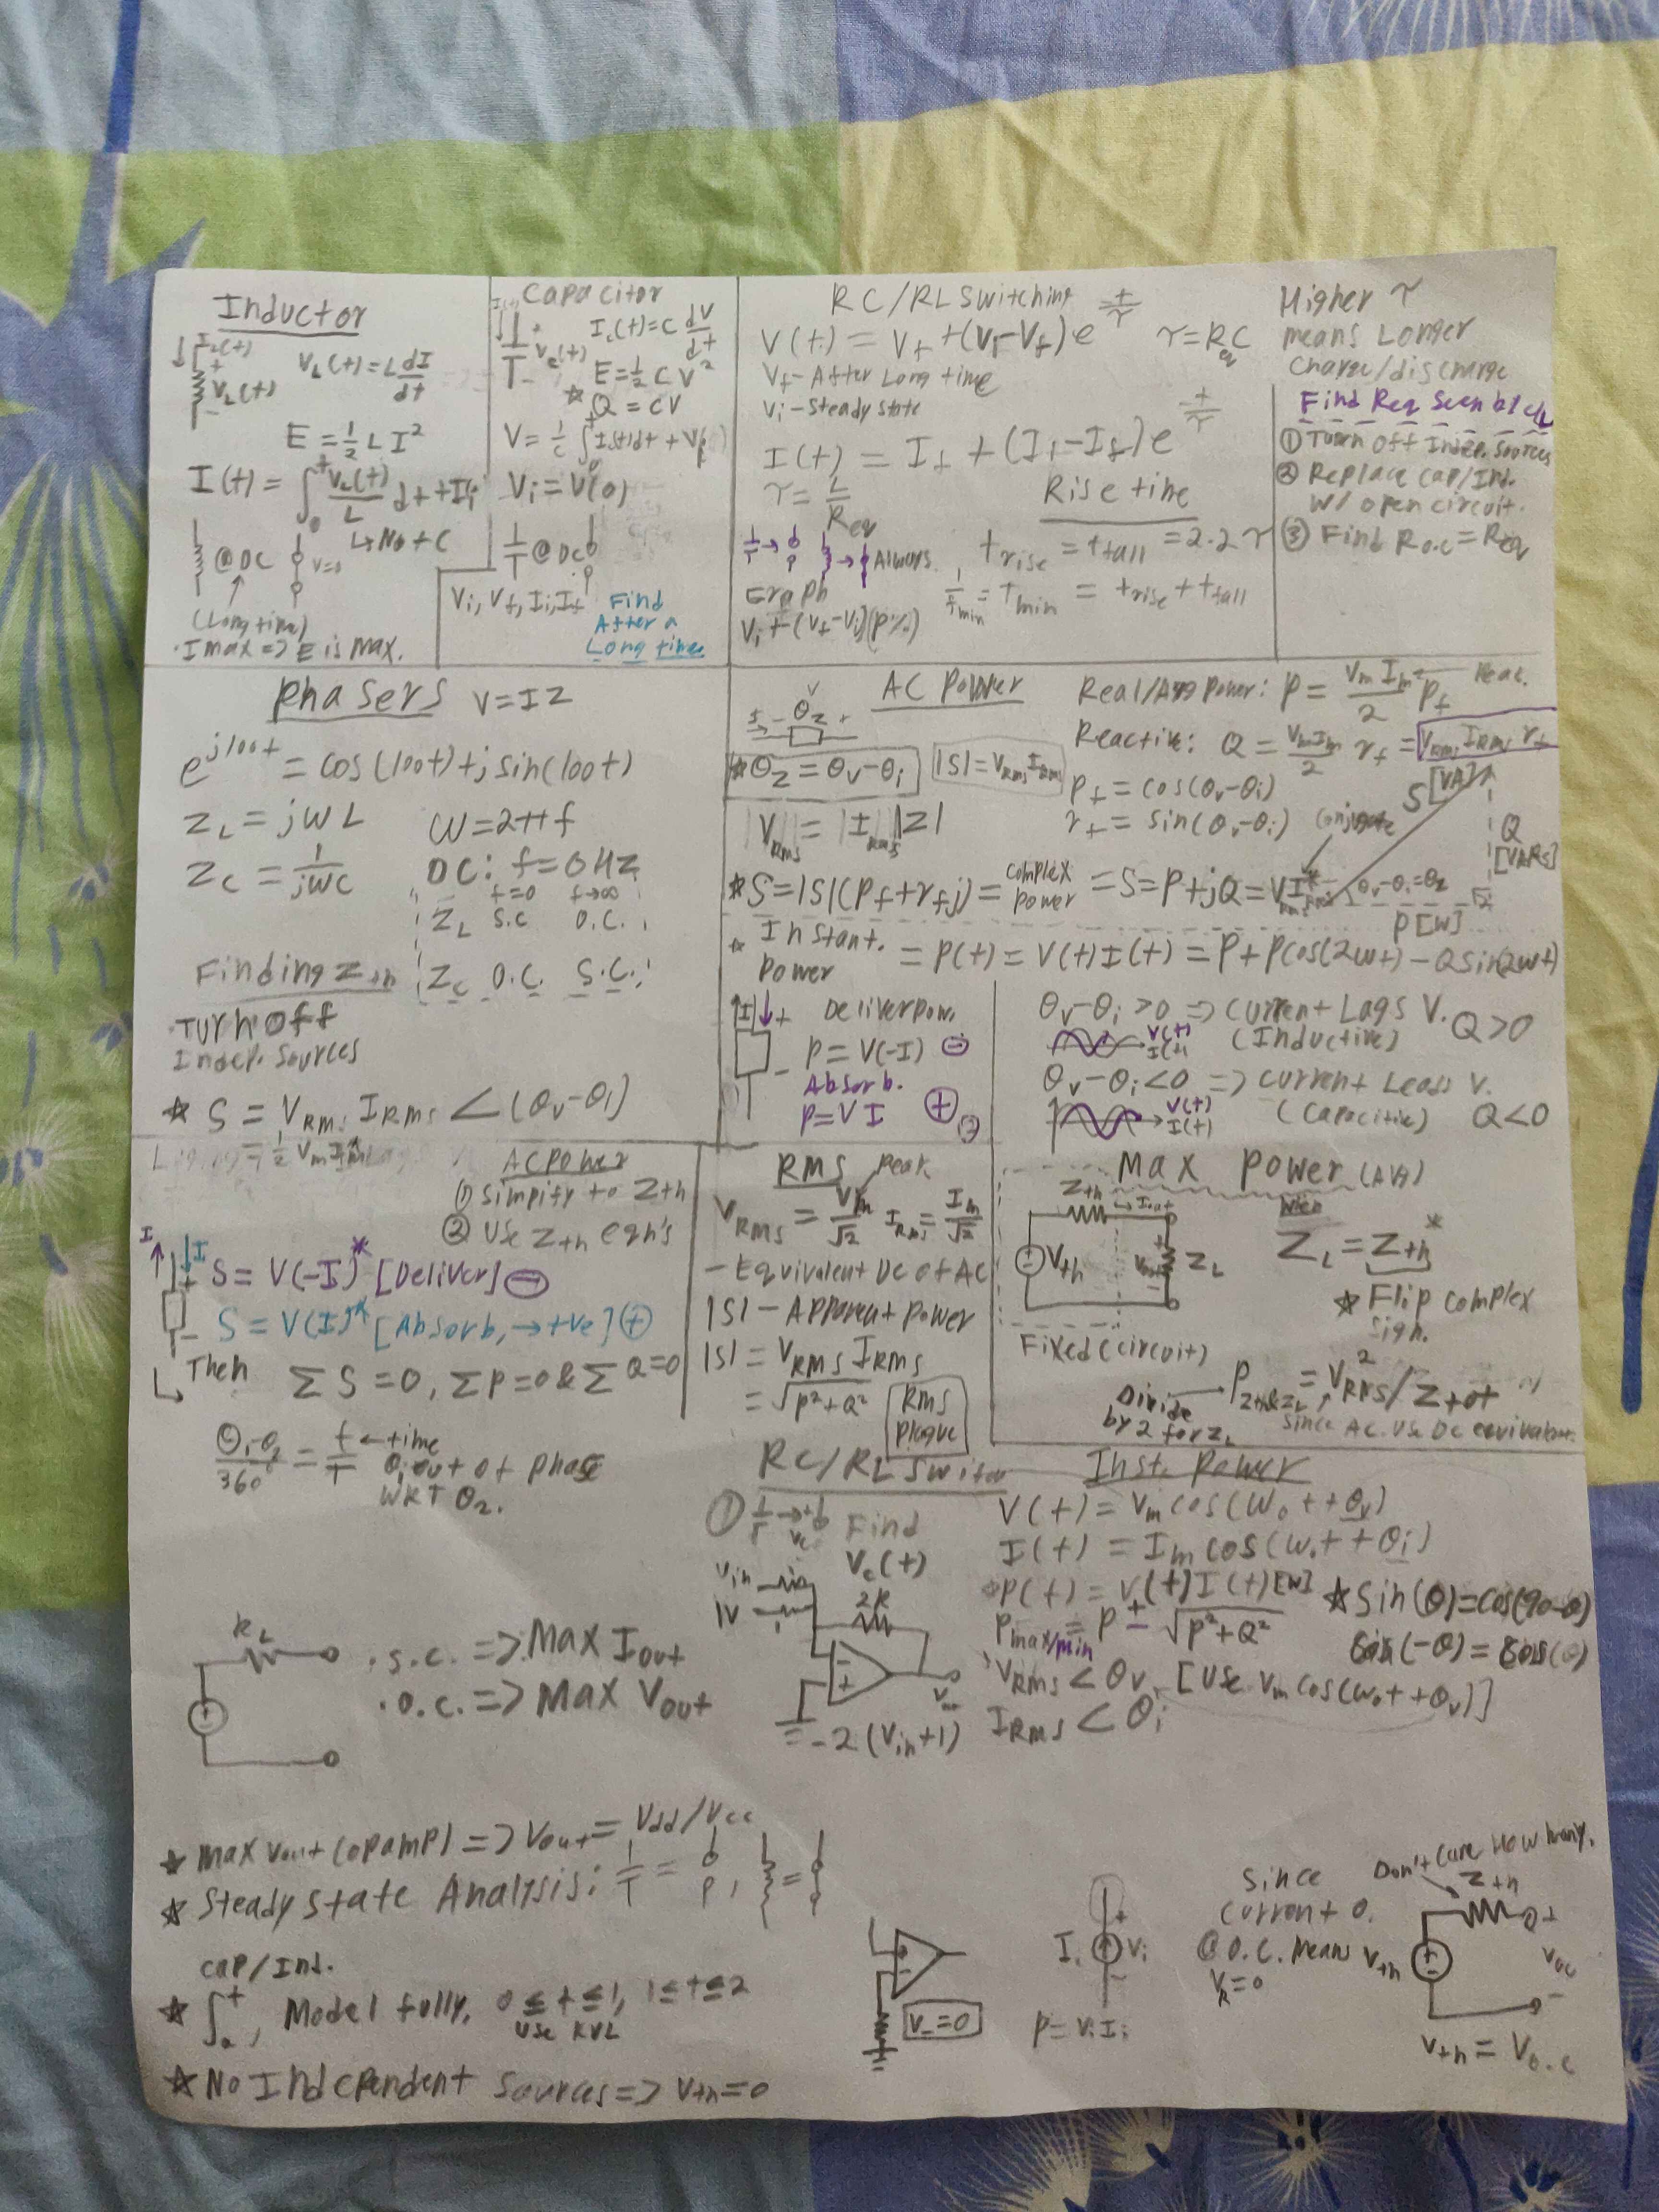 Inductor
I_L(t)
+
V_L(t)
-
V_L(t) = L dI/dt
E = 1/2 L I²
I(t) = ∫₀ᵗ V_L(t)/L dt + I_i
↳ No + C
@DC V=0
(Long time)
· I max => E is max.
Capacitor
V_c(t)
I_c(t) = C dV/dt
E = 1/2 C V²
☆ Q = CV
V_i = V(0)
@DC
V_i, V_f, I_i, I_f
Find
After a
Long time
RC/RL Switching
τ = R_eq C
V_f - After Long time
V_i - Steady state
τ = L/R_eq
Always.
Graph
V_i + (V_f - V_i)(P%)
Rise time
t_rise = t_fall = 2.2 τ
1/f_min = T_min = t_rise + t_fall
Higher τ
means Longer
Charge/discharge
Find Req Seen by C/L
① Turn off Indep. Sources
② Replace Cap/Ind.
W/ open circuit.
③ Find R o.c = Req
Phasers V = IZ
e^{j100t} = cos(100t) + j sin(100t)
Z_L = jwL w = 2πf
Z_C = 1/jwC DC: f = 0Hz
f=0 f→∞
Z_L S.C O.C.
Z_C O.C. S.C.
Finding Z_th
Turn off
Indep. Sources
☆ S = V_RMS I_RMS ∠(θv-θi)
AC Power
V
θ_z +
☆ θ_z = θv-θi
|S| = V_RMS I_RMS
|V_RMS| = |I_RMS||Z|
Real/Avg Power: P = V_m I_m / 2 P_f ← Peak.
Reactive: Q = V_m I_m / 2 r_f = V_RMS I_RMS r_f
P_f = cos(θv-θi)
r_f = sin(θv-θi)
Conjugate
S [VA]
Q
[VARs]
θv-θi=θz
P[W]
☆ S = |S|(P_f + r_f j) = complex power = S = P + jQ = V_rms I_rms*
☆ Instant. Power = P(t) = V(t)I(t) = P + Pcos(2wt) - Qsin(2wt)
I + Deliver pow.
P = V(-I) ⊖
Absorb.
P = VI ⊕
θv-θi > 0 => Current Lags V. Q > 0
V(t)
I(t)
(Inductive)
θv-θi < 0 => Current Leads V.
V(t)
I(t)
(Capacitive) Q < 0
AC Power
① Simpify to Zth
② Use Zth eqn's
I I
+
-
S = V(-I)* [Deliver] ⊖
S = V(I)* [Absorb, → +ve] ⊕
↳ Then ΣS = 0, ΣP = 0 & ΣQ = 0
= t/T ← time
θ₁ out of phase
WRT θ₂.
RMS Peak
V_RMS = V_m/√2 I_RMS = I_m/√2
- Equivalent DC of AC
|S| - Apparent Power
|S| = V_RMS I_RMS
= √(P²+Q²)
RMS
Plaque
Max Power (AVG)
Zth → Iout
Vth
+
-
Z_L
Fixed (circuit)
when
Z_L = Zth*
☆ Flip complex
sign.
Divide
by 2 for Z_L
P_{Zth&Z_L} = V²_RMS / Ztot
Since AC. Use DC equivalent.
RC/RL Switch
① Find
V_c(t)
Vin
1V
2R
-
+
= -2(Vin+1)
Inst. Power
V(t) = V_m cos(w₀t + θv)
I(t) = I_m cos(w₀t + θi)
P(t) = V(t)I(t) [W]
P_max/min = P ± √(P²+Q²)
V_RMS ∠ θv, [Use V_m cos(w₀t + θv)]
I_RMS ∠ θi
☆ Sin(θ) = cos(90-θ)
R_L
· S.C. => Max Iout
· O.C. => Max Vout
☆ Max Vout (opamp) => Vout = Vdd/Vcc
☆ Steady State Analysis:
Cap/Ind.
☆ ∫₀ᵗ, Model fully, 0≤t≤1, 1≤t≤2
Use KVL
☆ No Independent Sources => Vth = 0
V_- = 0
I_i
+
V_i
-
P = V_i I_i
Since
current 0.
@ O.C. Means
V_R = 0
Don't care How many.
Zth
Vth
+
Voc
-
Vth = V o.c